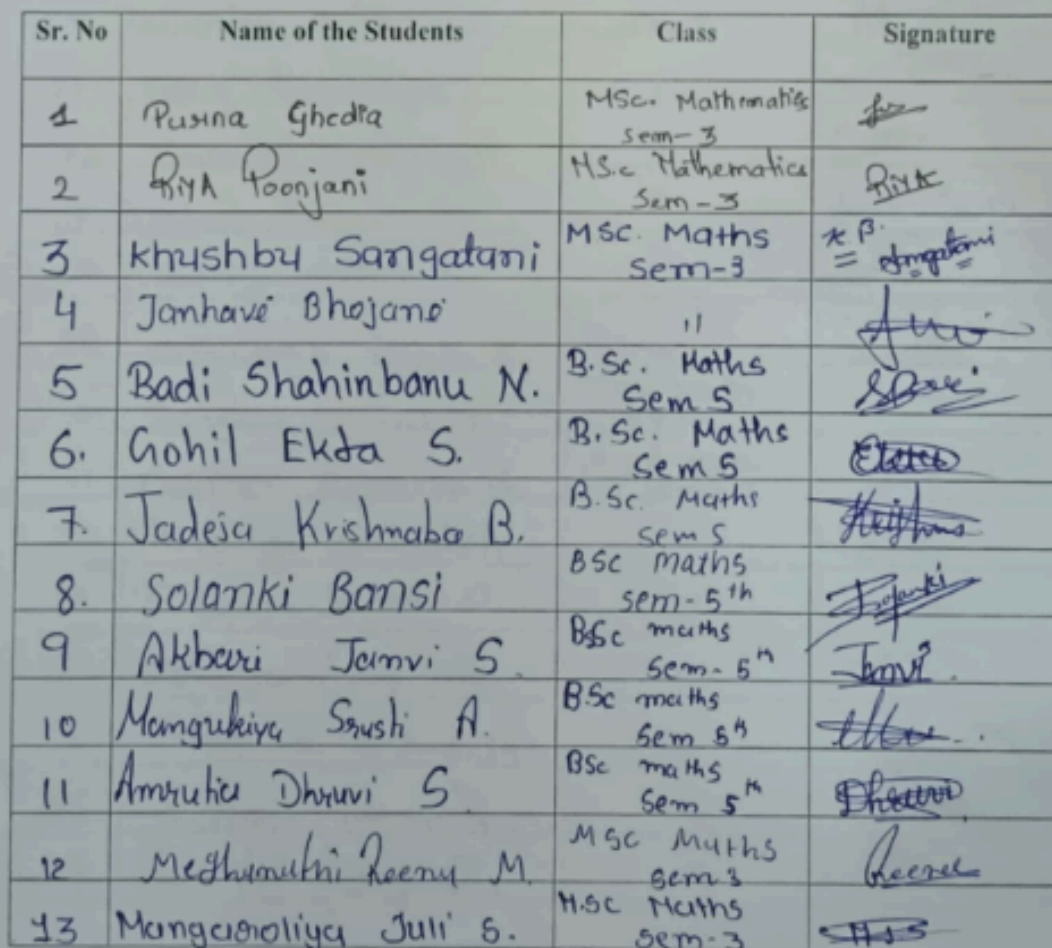 Sr. No Name of the Students Class Signature
1 Purna Ghedia MSc. Mathematics
Sem-3
2 Riya Poonjani MSc Mathematics Riya
Sem-3
3 Khushbu Sangatani MSc. Maths K B. Sangatani
Sem-3
4 Janhavi Bhojani 11
5 Badi Shahinbanu N. B.Sc. Maths
Sem 5
6. Gohil Ekta S. B.Sc. Maths Ekta
Sem 5
7. Jadeja Krishnaba B. B.Sc. Maths
Sem 5
8. Solanki Bansi BSc Maths
Sem-5th
9 Akbari Janvi S. BSc maths Janvi
Sem-5th
10 Mangukiya Srushi A. BSc maths
Sem 5th
11 Amrutia Dhruvi S BSc maths Dhruvi
Sem 5th
12 Reenu M. MSc Maths Reenu
Sem 3
13 Mangaroliya Juli S. M.SC Maths
Sem-3